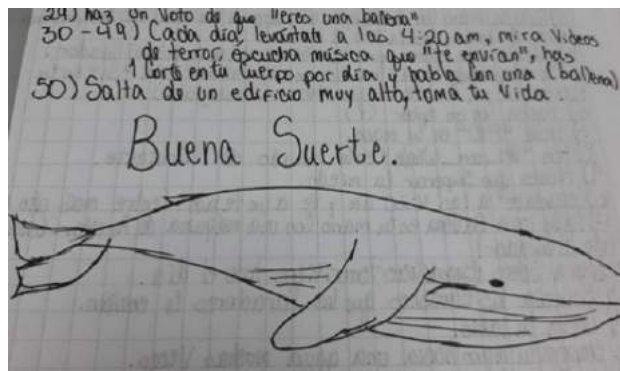 29) haz un voto de que "eres una ballena"
30-49) Cada día levántate a las 4:20 am, mira videos
de terror, escucha música que "te envían", has
1 corte en tu cuerpo por día y habla con una (ballena)
50) Salta de un edificio muy alto, toma tu vida.
Buena Suerte.